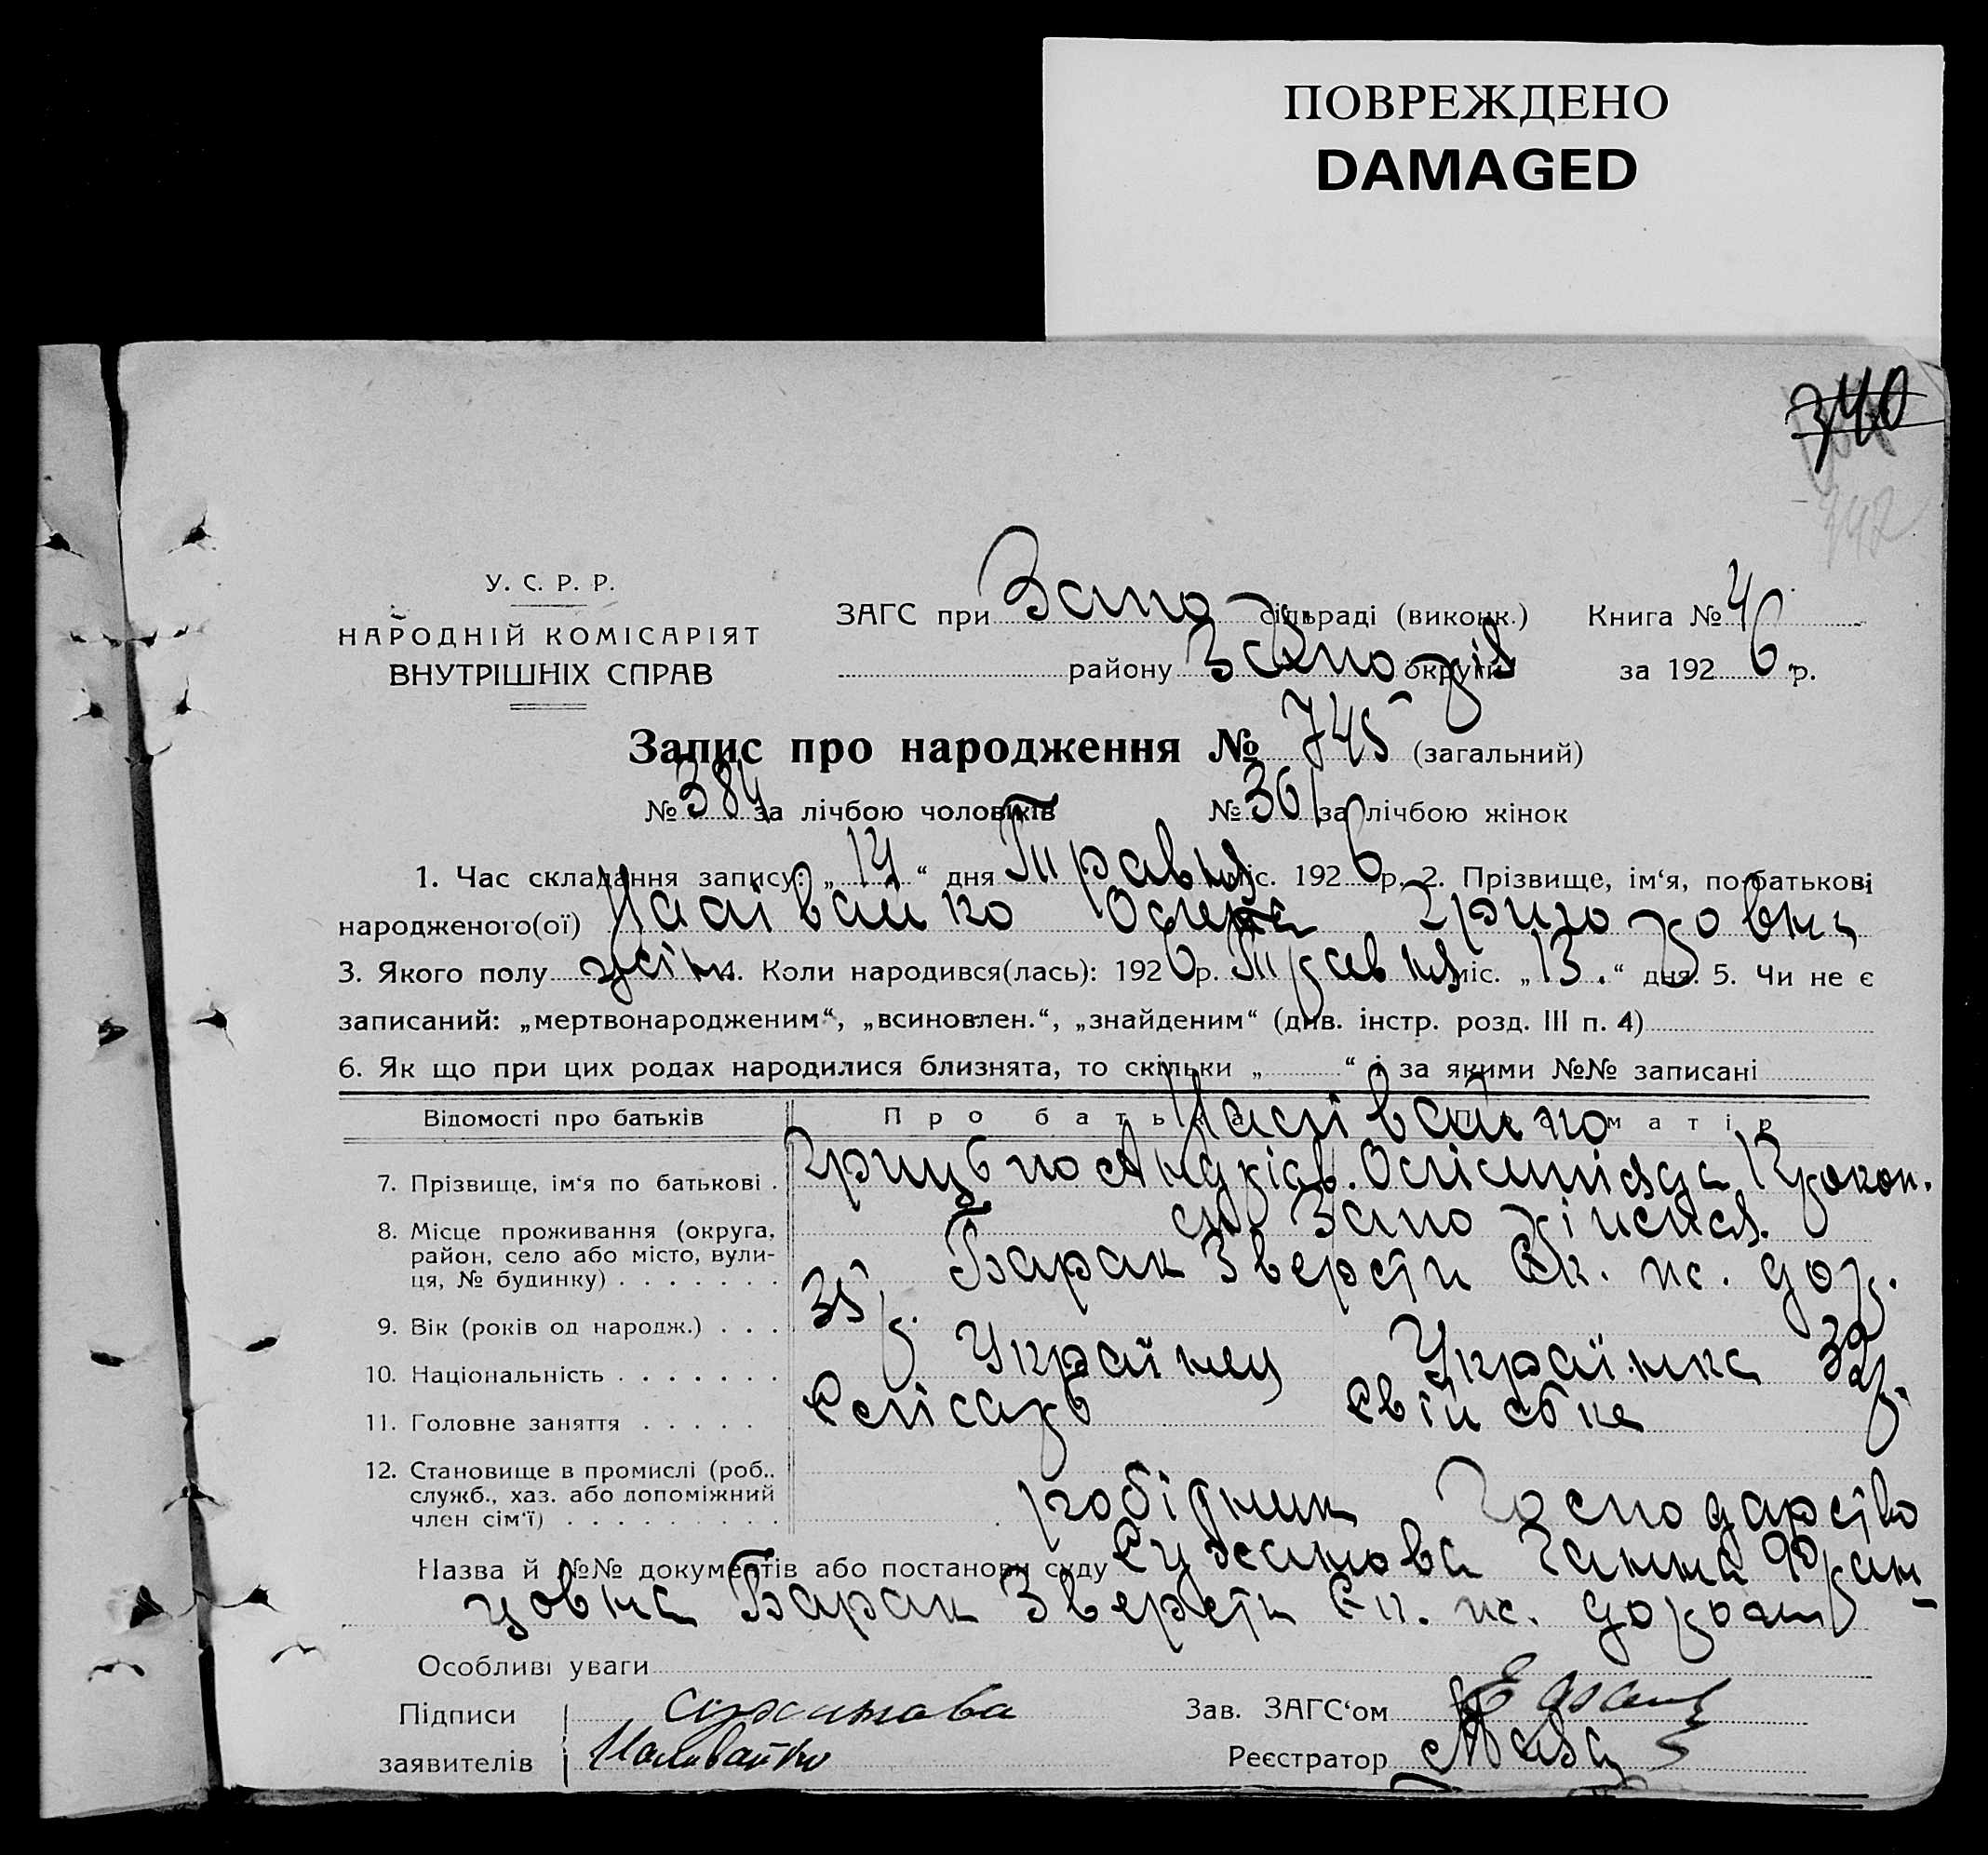 ПОВРЕЖДЕНО
DAMAGED
740
742
У. С. Р. Р.
НАРОДНІЙ КОМІСАРІЯТ
ВНУТРІШНІХ СПРАВ
ЗАГС при Запо сільраді (виконк.) Книга № 4
району Запо округи за 1926 р.
Запис про народження № 745 (загальний)
№ 384 за лічбою чоловіків № 361 за лічбою жінок
1. Час складання запису: „14“ дня Травня міс. 1926 р. 2. Прізвище, ім‘я, по батькові
народженого(ої) Налівайко Григоровна
3. Якого полу жін. 4. Коли народився(лась): 1926 р. Травня міс. „13.“ дня. 5. Чи не є
записаний: „мертвонародженим“, „всиновлен.“, „знайденим“ (див. інстр. розд. III п. 4)
6. Як що при цих родах народилися близнята, то скільки „ “ і за якими №№ записані
Відомості про батьків Про батька Про матір
Налівайко
7. Прізвище, ім‘я по батькові . Грицько Андріев. Прокоп.
8. Місце проживання (округа, район, село або місто, вулиця, № будинку) . . . . . . .
Барак Зверсти Ек. дор.
9. Вік (років од народж.) . . . 35 р. 32 р.
10. Національність . . . . . . . Українец Українка
11. Головне заняття . . . . . Слісарь
12. Становище в промислі (роб.. служб., хаз. або допоміжний член сім‘ї) . . . . . . . . . робітник Господарство
Назва й №№ документів або постанови суду Сужанова Ганна Фран-
цовна Барак Зверсти
Особливі уваги
Підписи Сужанова Зав. ЗАГС‘ом
заявителів Наливайко Реєстратор